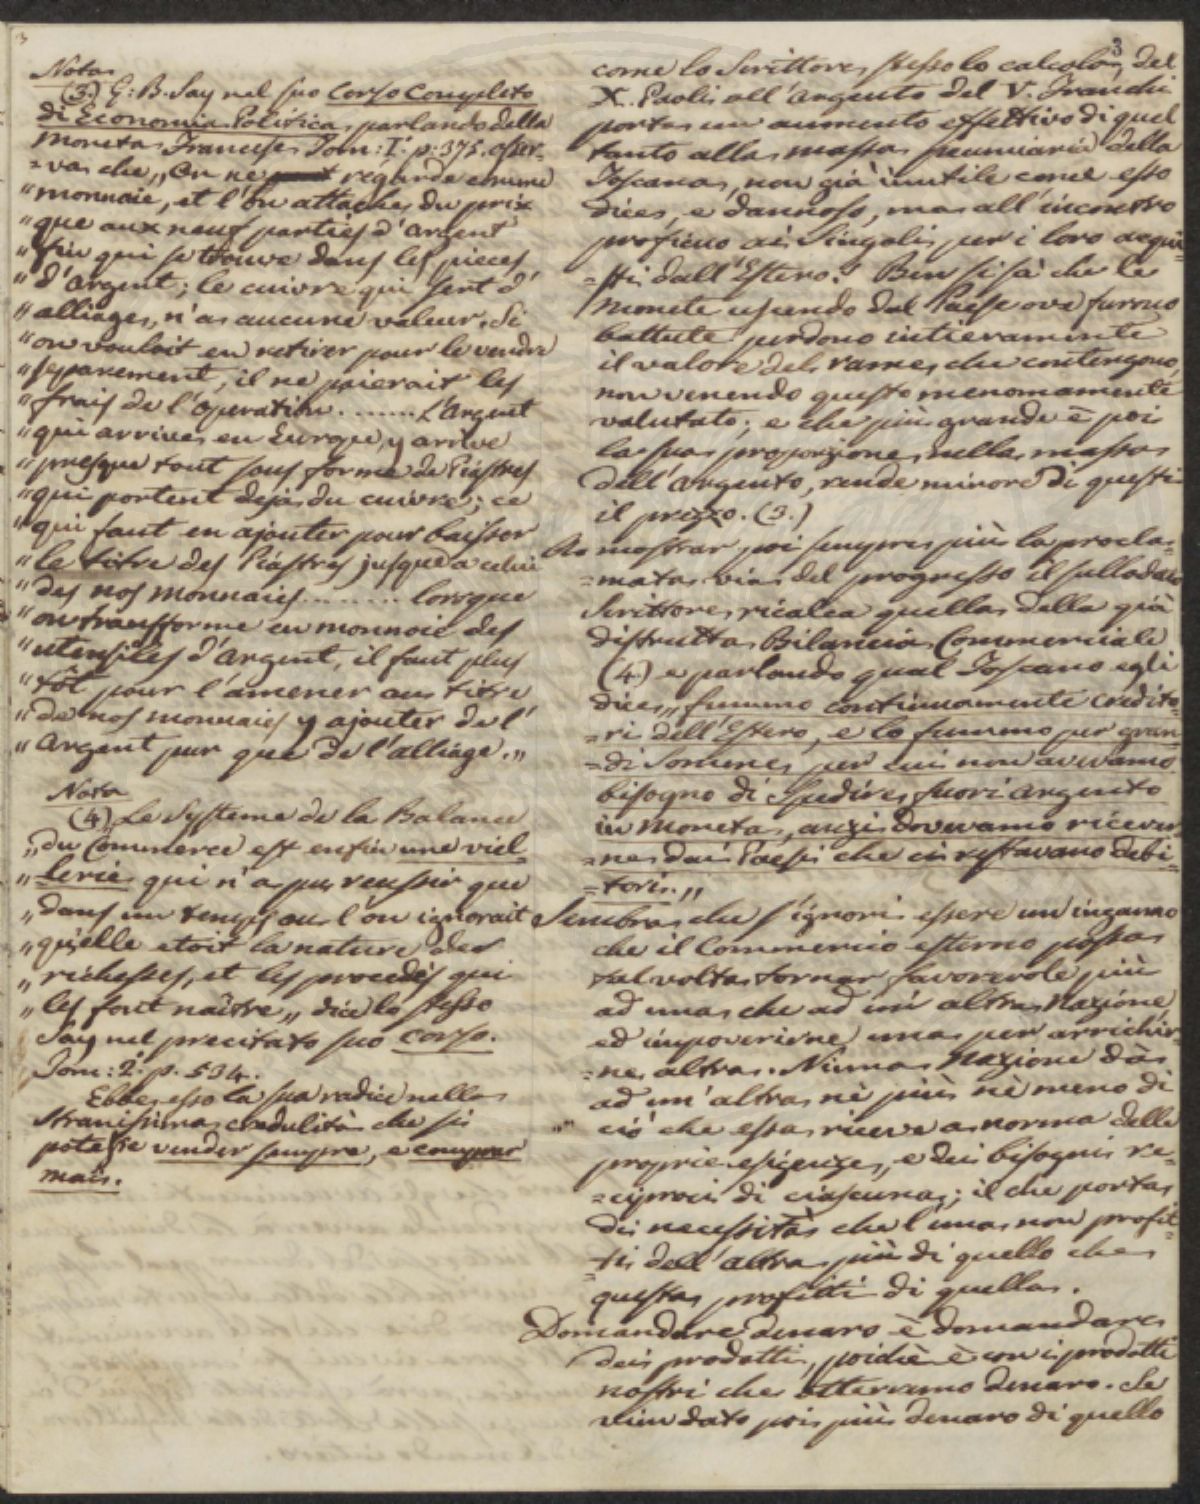 3
Nota
(3.) G: B. Say nel suo Corso Completo
di Economia Politica, parlando della
Moneta Francese Tom: I.° p: 375. osser-
=va che „ On ne regarde comme
“ monnaie, et l'on attache du prix
“ que aux neuf parties d'argent
“ fin qui se trouve dans les pieces
“ d'argent; le cuivre qui sert d'
“ alliage, n'a aucune valeur. Si
“ on vouloit en retirer pour le vendre
“ separement, il ne paierait les
“ frais de l'operation. ....... L'Argent
“ qui arrive en Europe, y arrive
“ presque tout sous forme de Piastres
“ qui portent deja du cuivre; ce
“ qui faut en ajouter pour baisser
“ le titre des Piastres jusque a celui
“ des nos monnaies ........ lorsque
“ on transforme en monnoie des
“ utensiles d'argent, il faut plus
“ tôt pour l'amener au titre
“ de nos monnaies y ajouter de l'
“ Argent pur que de l'alliage. „
Nota
(4) Le Systeme de la Balance
„ du Commerce est enfin une viel-
„ lerie qui n'a pu reussir que
„ dans un temps ou l'on ignorait
„ qu'elle etoit la nature des
„ richesses, et les procedés qui
„ les font naître „ dice lo stesso
Say nel precitato suo Corso.
Tom: 2.° p. 534.
Ebbe esso la sua radice nella
stranissima credulità che si
potesse vender sempre, e comprar
mai.
3
come lo Scrittore stesso lo calcola, del
X. Paoli all'argento del V. Franchi
porta un aumento effettivo di quel
tanto alla massa pecuniaria della
Toscana, non già inutile come esso
dice, e dannoso, ma all'incontro
proficuo ai Singoli per i loro acqui-
=sti dall'Estero. Ben si sà che le
Monete uscendo dal Paese ove furono
battute perdono intieramente
il valore del rame che contengono,
non venendo questo menomamente
valutato; e che più grande è poi
la sua proporzione nella massa
dell'argento, rende minore di questi
il prezzo. (3.)
A mostrar poi sempre più la procla-
=mata via del progresso il sullodato
Scrittore, ricalca quella della già
distrutta Bilancia Commerciale
(4.) e parlando qual Toscano egli
dice „ fummo continuamente credito-
=ri dell'Estero, e lo fummo per gran-
=di Somme, per cui non avevamo
bisogno di spedire fuori argento
in Moneta, anzi dovevamo ricever-
=ne dai Paesi che ci restavano debi-
=tori. „
Sembra che s'ignori essere un inganno
che il Commercio esterno possa
talvolta tornar favorevole più
ad una che ad un' altra Nazione,
ed impoverirne una per arricchir-
=ne altra. Niuna Nazione dà
ad un'altra nè più nè meno di
ciò che essa riceve a norma delle
proprie esigenze, e dei bisogni re-
=ciproci di ciascuna; il che porta
di necessità che l'una non profit-
=ti dell'altra più di quello che
questa profitti di quella.
Domandare denaro è domandare
dei prodotti, poichè è con i prodotti
nostri che otterremo denaro. Se
vien dato poi più denaro di quello